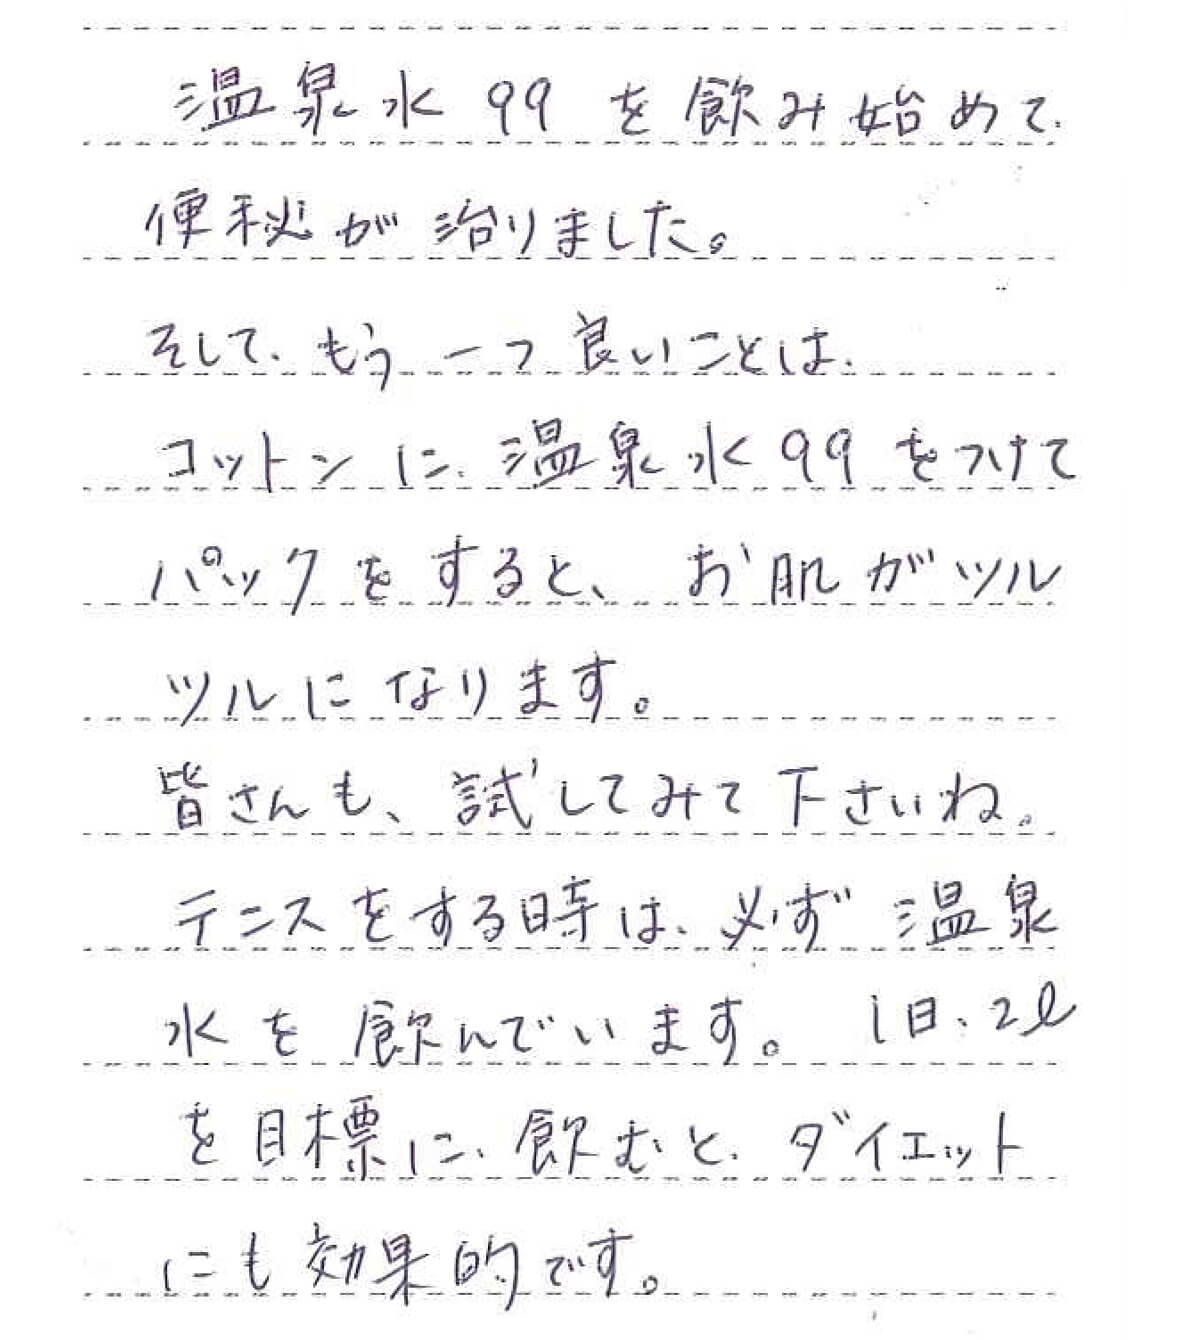 温泉水99を飲み始めて、
便秘が治りました。
そして、もう一つ良いことは、
コットンに、温泉水99をつけて
パックをすると、お肌がツル
ツルになります。
皆さんも、試してみて下さいね。
テニスをする時は、必ず温泉
水を飲んでいます。1日、2ℓ
を目標に、飲むと、ダイエット
にも効果的です。